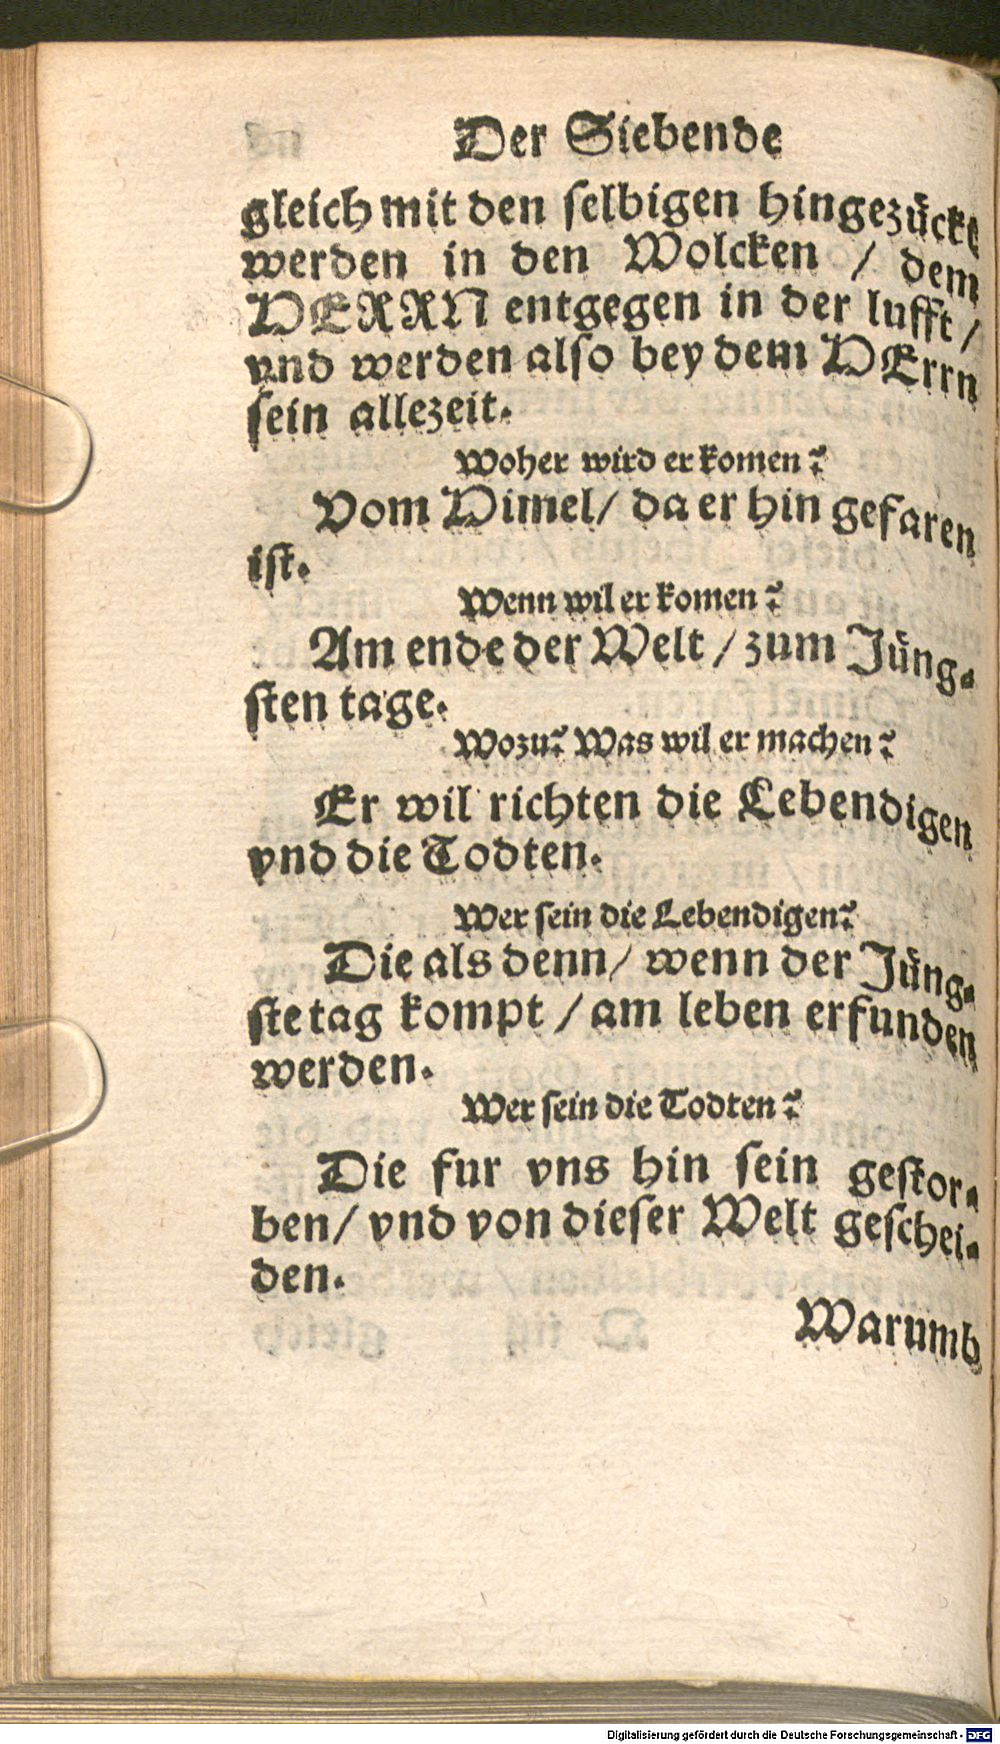 Der Siebende
gleich mit den selbigen hingezückt
werden in den Wolcken / dem
HERRN entgegen in der lufft /
vnd werden also bey dem HErrn
sein allezeit.
Woher wird er komen?
Vom Himel / da er hin gefaren
ist.
Wenn wil er komen?
Am ende der Welt / zum Jüng-
sten tage.
Wozu? Was wil er machen?
Er wil richten die Lebendigen
vnd die Todten.
Wer sein die Lebendigen?
Die als denn / wenn der Jüng-
ste tag kompt / am leben erfunden
werden.
Wer sein die Todten?
Die fur vns hin sein gestor-
ben / vnd von dieser Welt geschei-
den.
Warumb
Digitalisierung gefördert durch die Deutsche Forschungsgemeinschaft - DFG